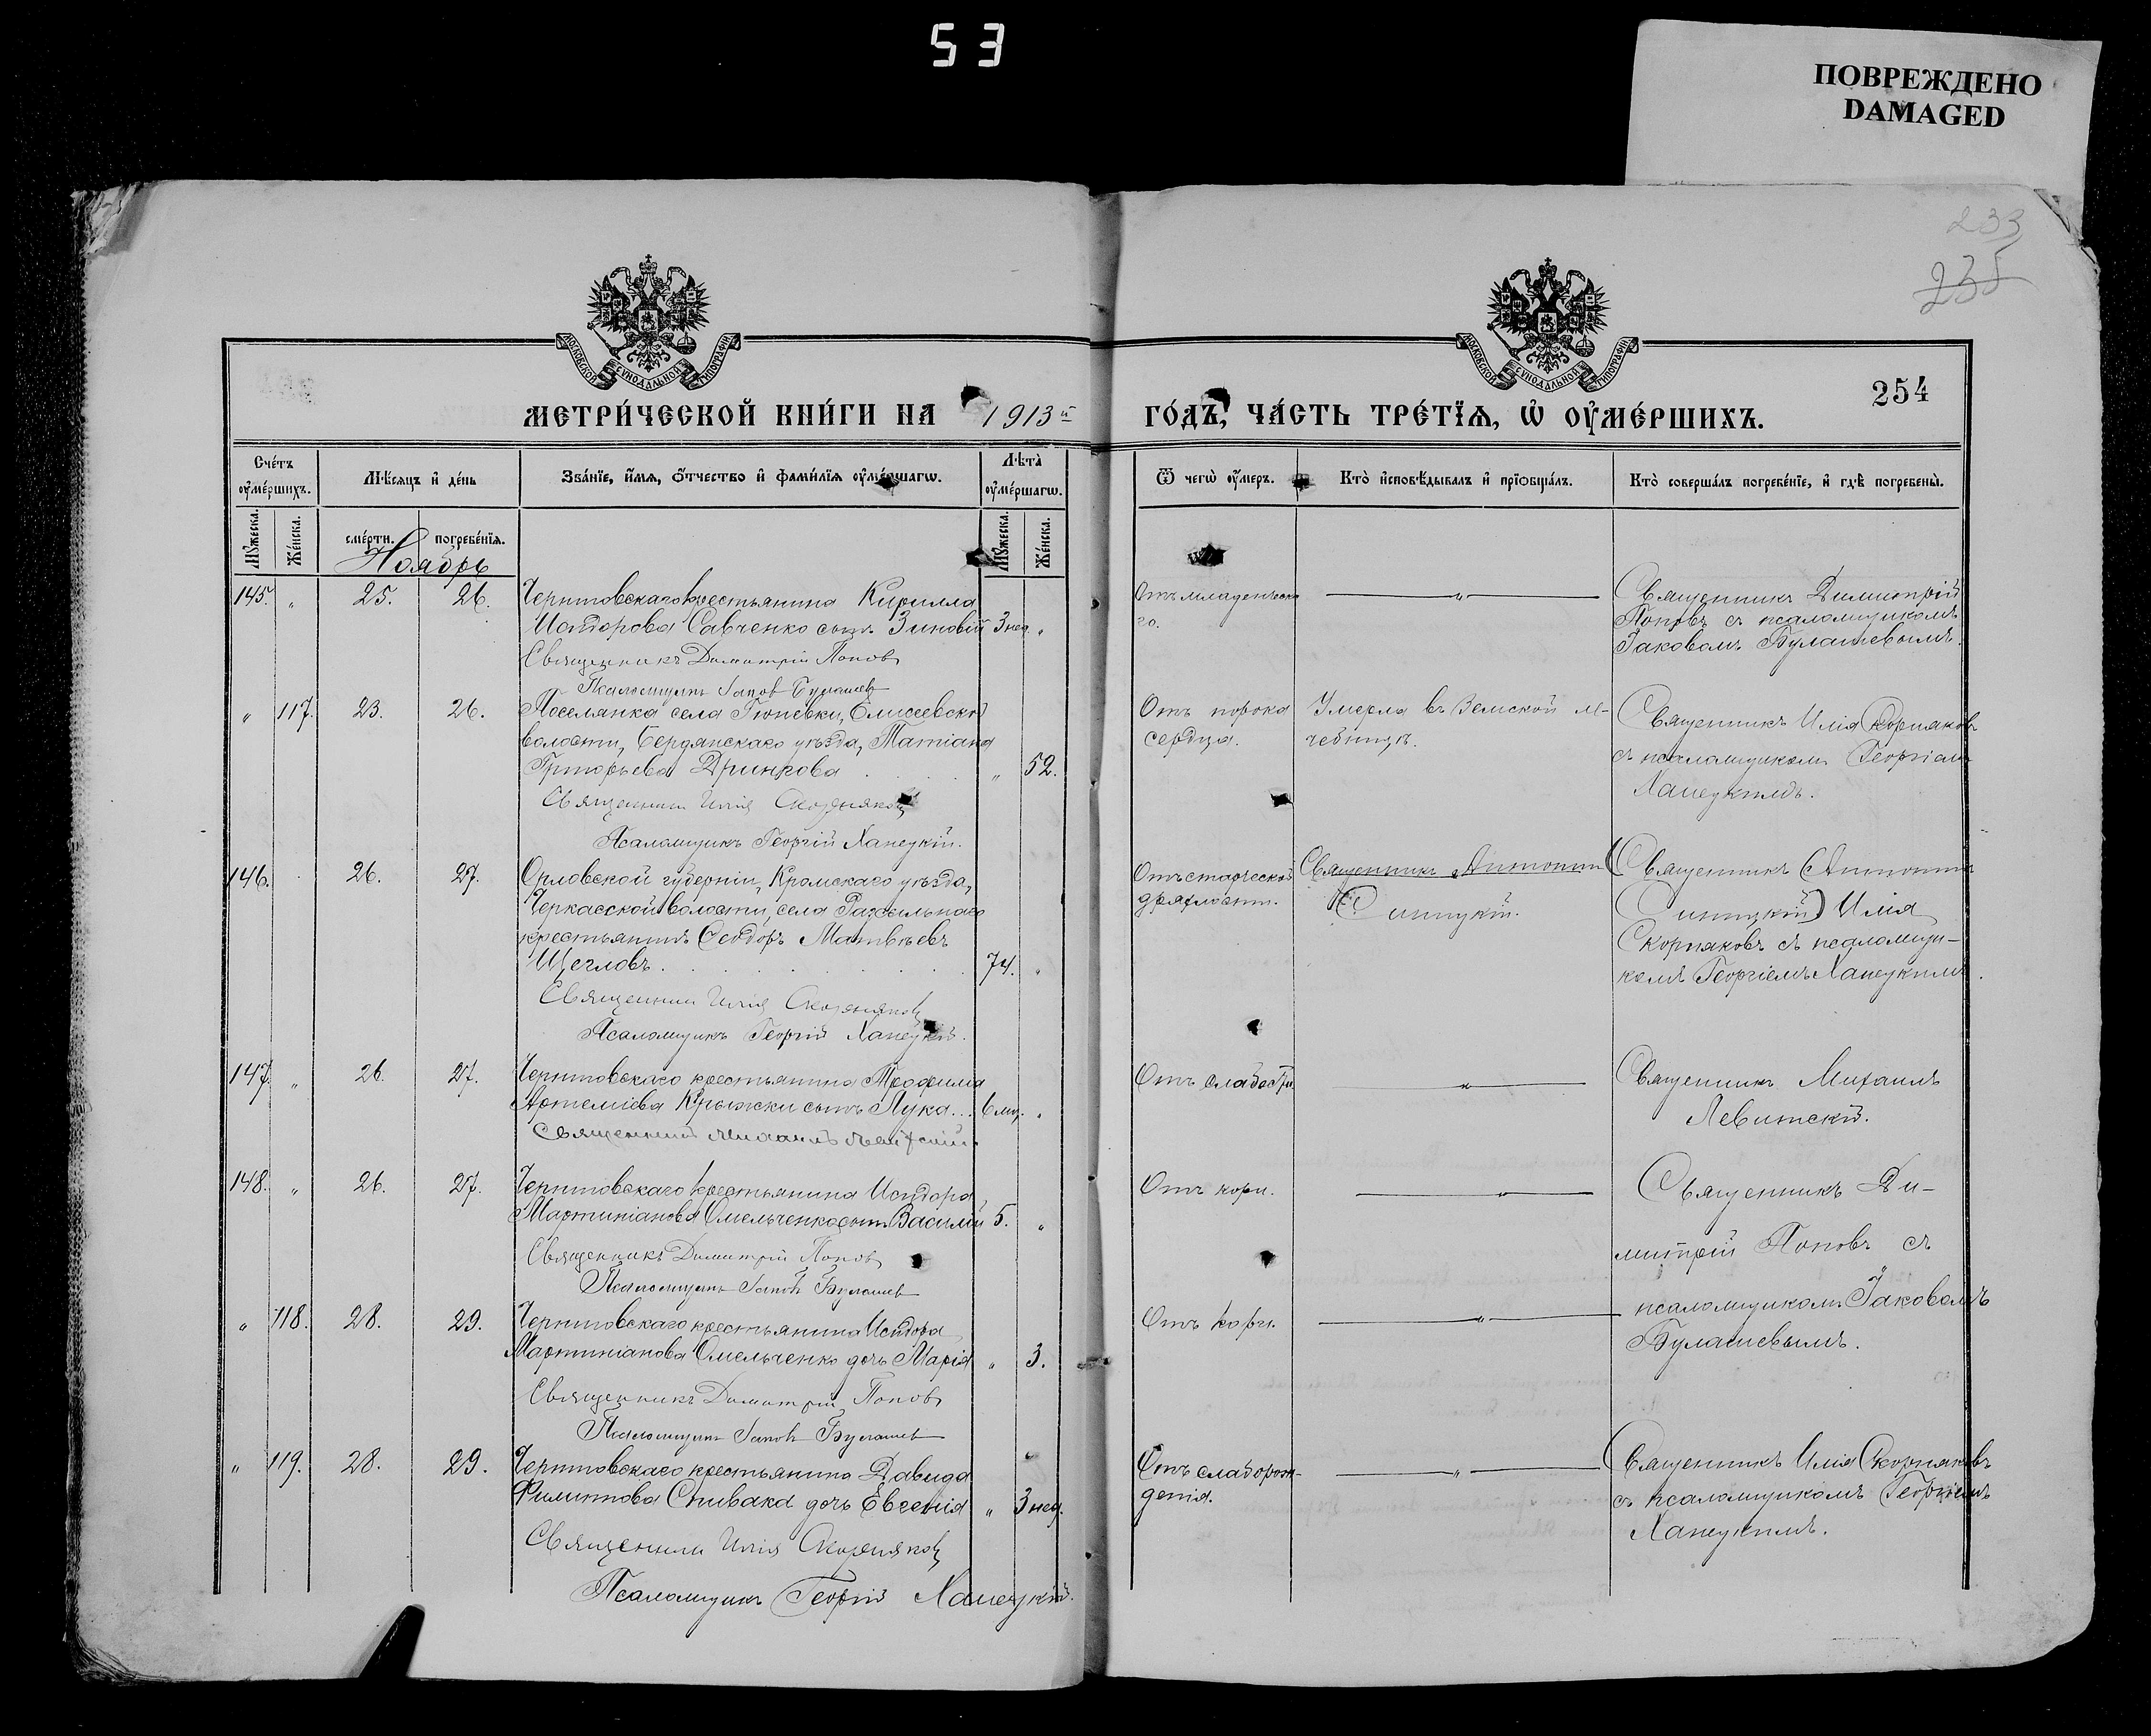 53
ПОВРЕЖДЕНО
DAMAGED
233
235
МОСКОВСКОЙ СУНОДАЛЬНОЙ ТИПОГРАФІИ
МОСКОВСКОЙ СУНОДАЛЬНОЙ ТИПОГРАФІИ
254
МЕТРИ́ЧЕСКОЙ КНИ́ГИ НА 1913й ГО́ДЪ, ЧА́СТЬ ТРЕ́ТІѦ, Ѡ ОУМЕ́РШИХЪ.
Сче́тъ оуме́ршихъ.
Мѣ́сяцъ и де́нь
Зва́нїе, и́мѧ, ѻ́тчество и фами́лїѧ оуме́ршагѡ.
Лѣта̀ оуме́ршагѡ.
Ѿ чегѡ̀ оу́меръ.
Кто̀ исповѣ́дывалъ и прїѡбща́лъ.
Кто̀ соверша́лъ погребе́нїе, и гдѣ̀ погребены̀.
Мꙋ́жеска.
Же́нска.
сме́рти.
погребе́нїѧ.
Мꙋ́жеска.
Же́нска.
Ноябрь
145. " 25. 26. Черниговскаго крестьянина Кирилла
Исидорова Савченко сынъ Зиновій 3 нед. "
Священникъ Димитрій Поповъ
Псаломщикъ Іаковъ Булашев
Отъ младенческа
го.
"
Священникъ Димитрій
Поповъ съ псаломщикомъ
Іаковомъ Булашевымъ.
" 117. 23. 26. Поселянка села Гюневки, Елисеевской
волости, Бердянскаго уѣзда, Матіана
Григорьева Дринкова " 52.
Священникъ Илія Скорняковъ
Псаломщикъ Георгій Ханецкій.
Отъ порока
сердца.
Умерла въ Земской ле-
чебницѣ.
Священникъ Илія Скорняковъ
съ псаломщикомъ Георгіемъ
Ханецкимъ.
146. 26. 27. Орловской губерніи, Кромскаго уѣзда,
Черкасской волости, села
крестьянинъ Ѳеодоръ Матвѣевъ
Щегловъ. 74. "
Священникъ Илія Скорняковъ
Псаломщикъ Георгій Ханецкій.
Отъ старческой
дряхлости.
Священникъ Антонин
Синицкій.
Священникъ (Антонинъ
Синицкій) Илія
Скорняковъ съ псаломщи-
комъ Георгіемъ Ханецкимъ.
147. " 26. 27. Черниговскаго крестьянина Трофима
Артеміева Крыжки сынъ Лука... 6 мц. "
Священникъ Михаилъ Левитскій.
Отъ слабости.
"
Священникъ Михаилъ
Левитскій.
148. " 26. 27. Черниговскаго крестьянина Исидора
Мартиніанова Омельченко сынъ Василій 5. "
Священникъ Димитрій Поповъ
Псаломщикъ Іаковъ Булашев
Отъ кори.
"
Священникъ Ди-
митрій Поповъ съ
псаломщикомъ Іаковомъ
Булашевымъ.
" 118. 28. 29. Черниговскаго крестьянина Исидора
Мартиніанова Омельченко дочь Марія " 3.
Священникъ Димитрій Поповъ
Псаломщикъ Іаковъ Булашев
Отъ кори.
"
" 119. 28. 29. Черниговскаго крестьянина Давида
Филиппова Спивака дочь Евгенія " 3 нед.
Священникъ Илія Скорняковъ
Псаломщикъ Георгій Ханецкій.
Отъ слаборож-
денія.
"
Священникъ Илія Скорняковъ
съ псаломщикомъ Георгіемъ
Ханецкимъ.